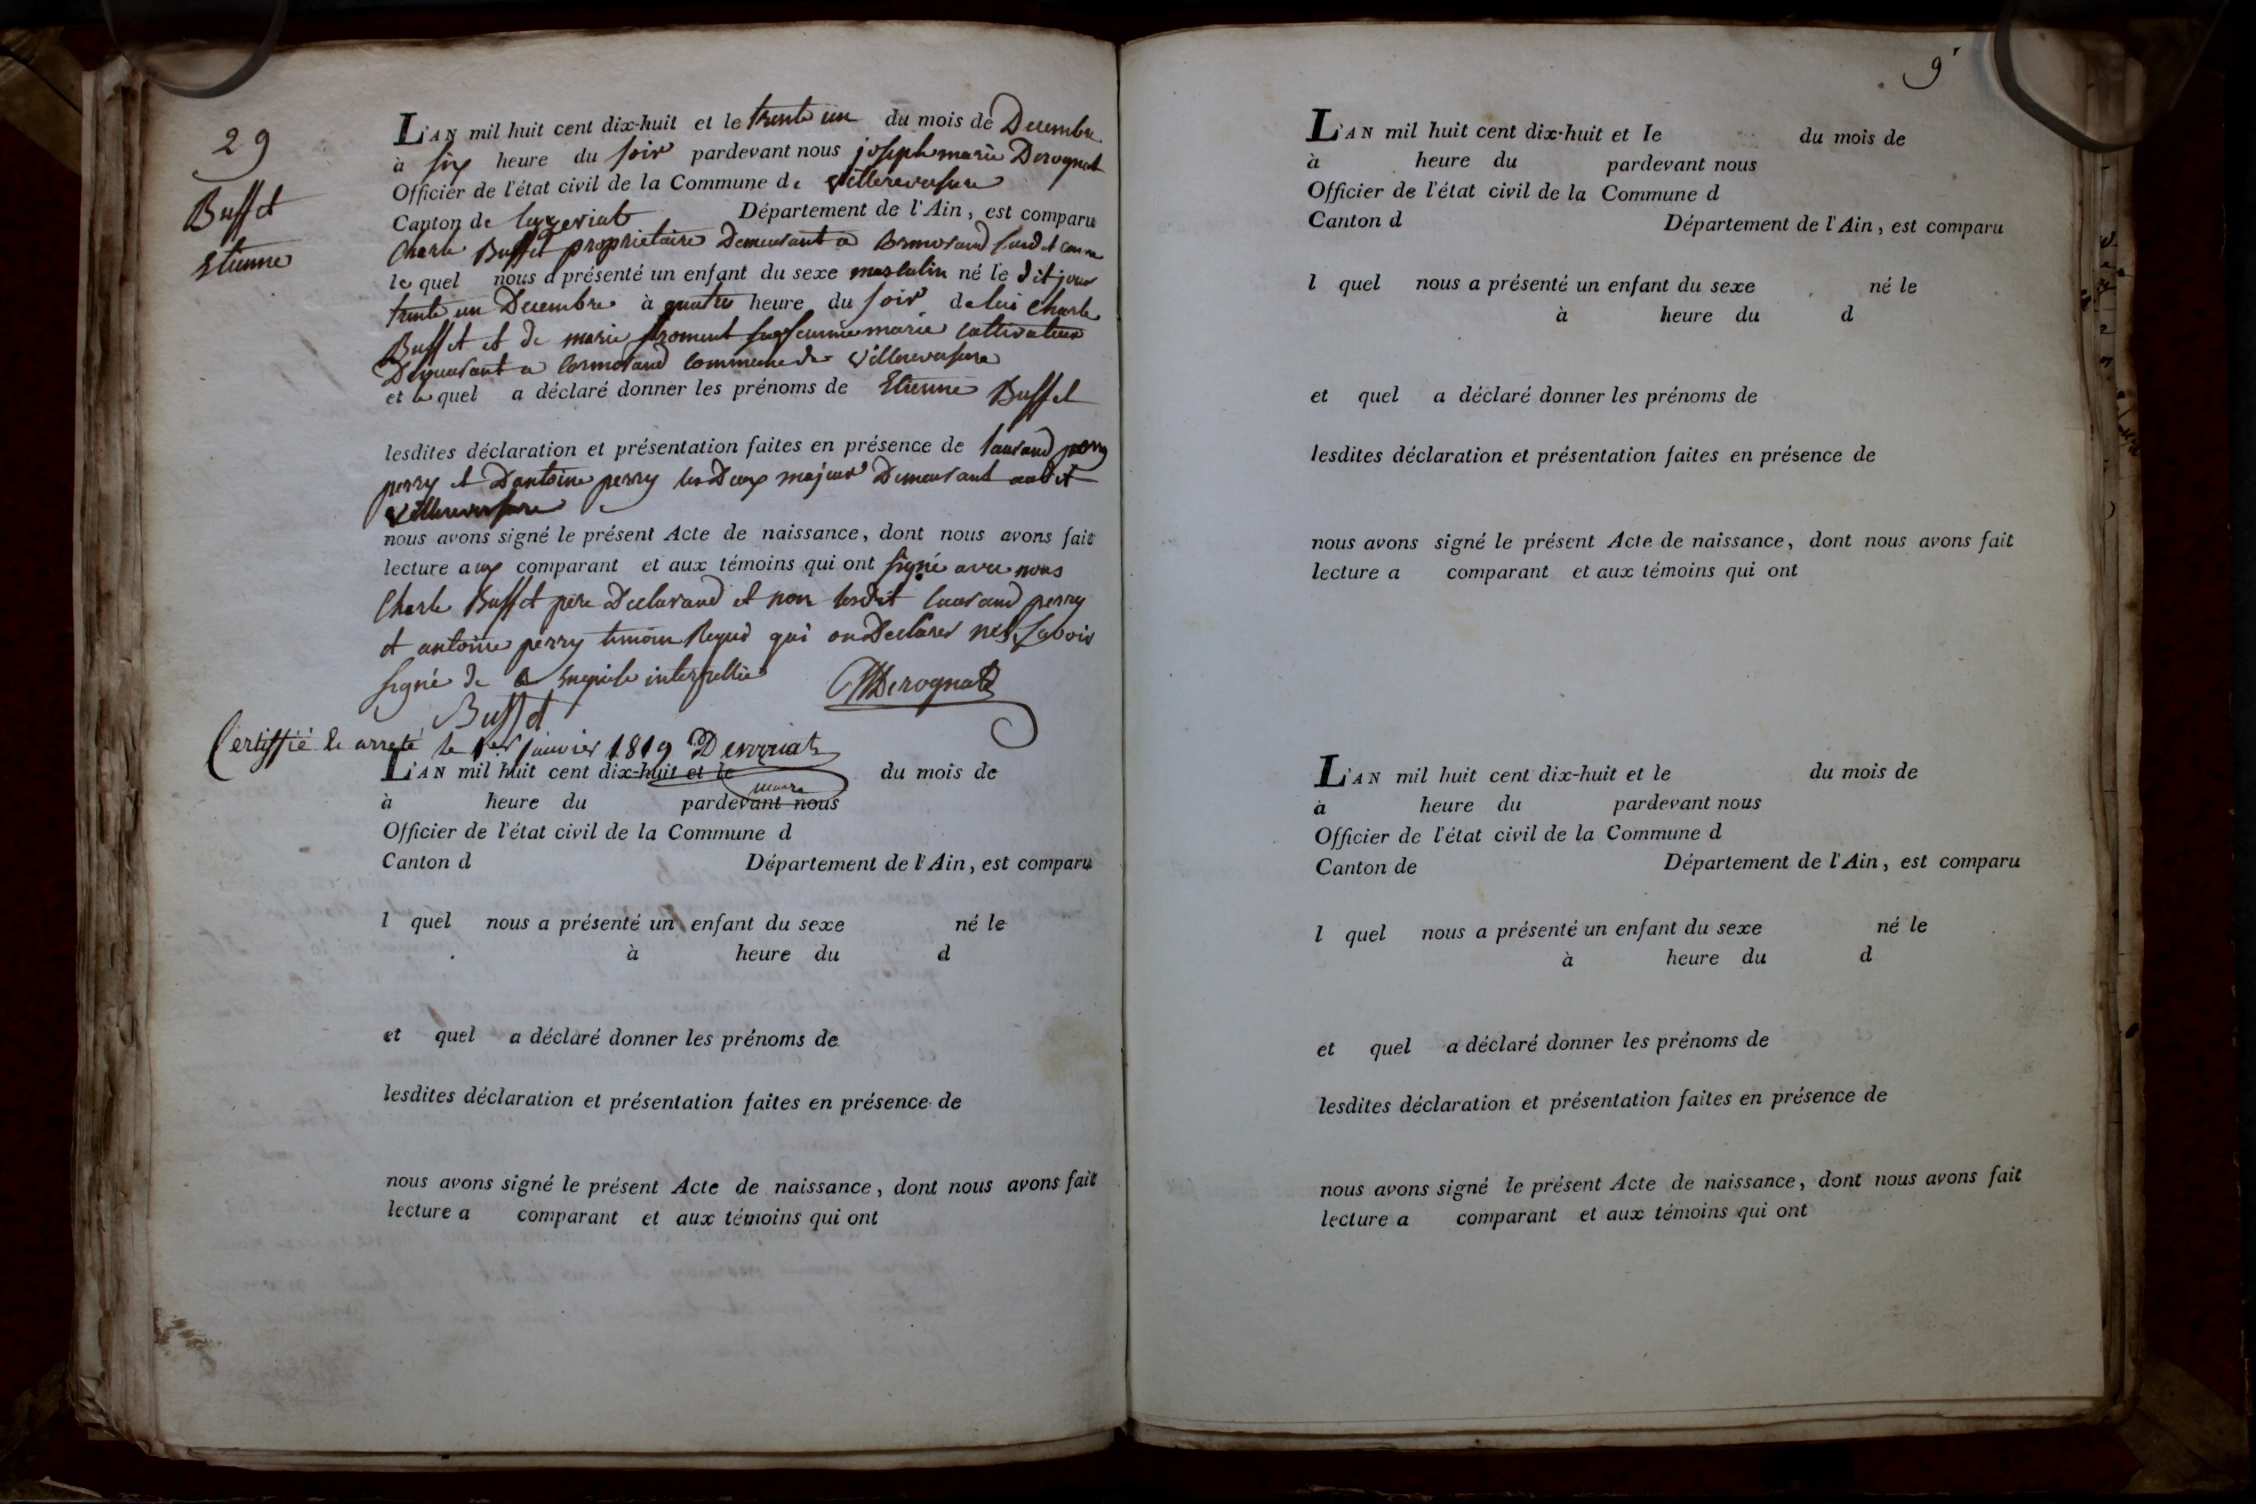 29
Buffet
Etienne
L'AN mil huit cent dix-huit et le trente un du mois de Decembre
à six heure du soir pardevant nous joseph marie Derognat
Officier de l'état civil de la Commune de Villereversure
Canton de Ceyzeriat Département de l'Ain, est comparu
Charle Buffet proprietaire Demeurant a Cormorand
le quel nous a présenté un enfant du sexe masculin né le dit jour
trente un Decembre à quatre heure du soir de lui Charle
Buffet et de marie froment marie cultivateur
Demeurant a Cormorand Commune de Villereversure
et le quel a déclaré donner les prénoms de Etienne Buffet
lesdites déclaration et présentation faites en présence de laurand perry
perry et D'antoine perry les Deux majeur Demeurant audit
Villereversure
nous avons signé le présent Acte de naissance, dont nous avons fait
lecture aux comparant et aux témoins qui ont signé avec nous
Charle Buffet pere Declarand et non lesdit laurand perry
et antoine perry temoin Requis qui on Declarer savoir
signé de enquise interpellé
Derognat
Buffet
Certiffié et arreté le 1er janvier 1819 Derognat
maire
L'AN mil huit cent dix-huit et le du mois de
à heure du pardevant nous
Officier de l'état civil de la Commune d
Canton d Département de l'Ain, est comparu
l quel nous a présenté un enfant du sexe né le
à heure du d
et quel a déclaré donner les prénoms de
lesdites déclaration et présentation faites en présence de
nous avons signé le présent Acte de naissance, dont nous avons fait
lecture a comparant et aux témoins qui ont
9
L'AN mil huit cent dix-huit et le du mois de
à heure du pardevant nous
Officier de l'état civil de la Commune d
Canton d Département de l'Ain, est comparu
l quel nous a présenté un enfant du sexe né le
à heure du d
et quel a déclaré donner les prénoms de
lesdites déclaration et présentation faites en présence de
nous avons signé le présent Acte de naissance, dont nous avons fait
lecture a comparant et aux témoins qui ont
L'AN mil huit cent dix-huit et le du mois de
à heure du pardevant nous
Officier de l'état civil de la Commune d
Canton de Département de l'Ain, est comparu
l quel nous a présenté un enfant du sexe né le
à heure du d
et quel a déclaré donner les prénoms de
lesdites déclaration et présentation faites en présence de
nous avons signé le présent Acte de naissance, dont nous avons fait
lecture a comparant et aux témoins qui ont